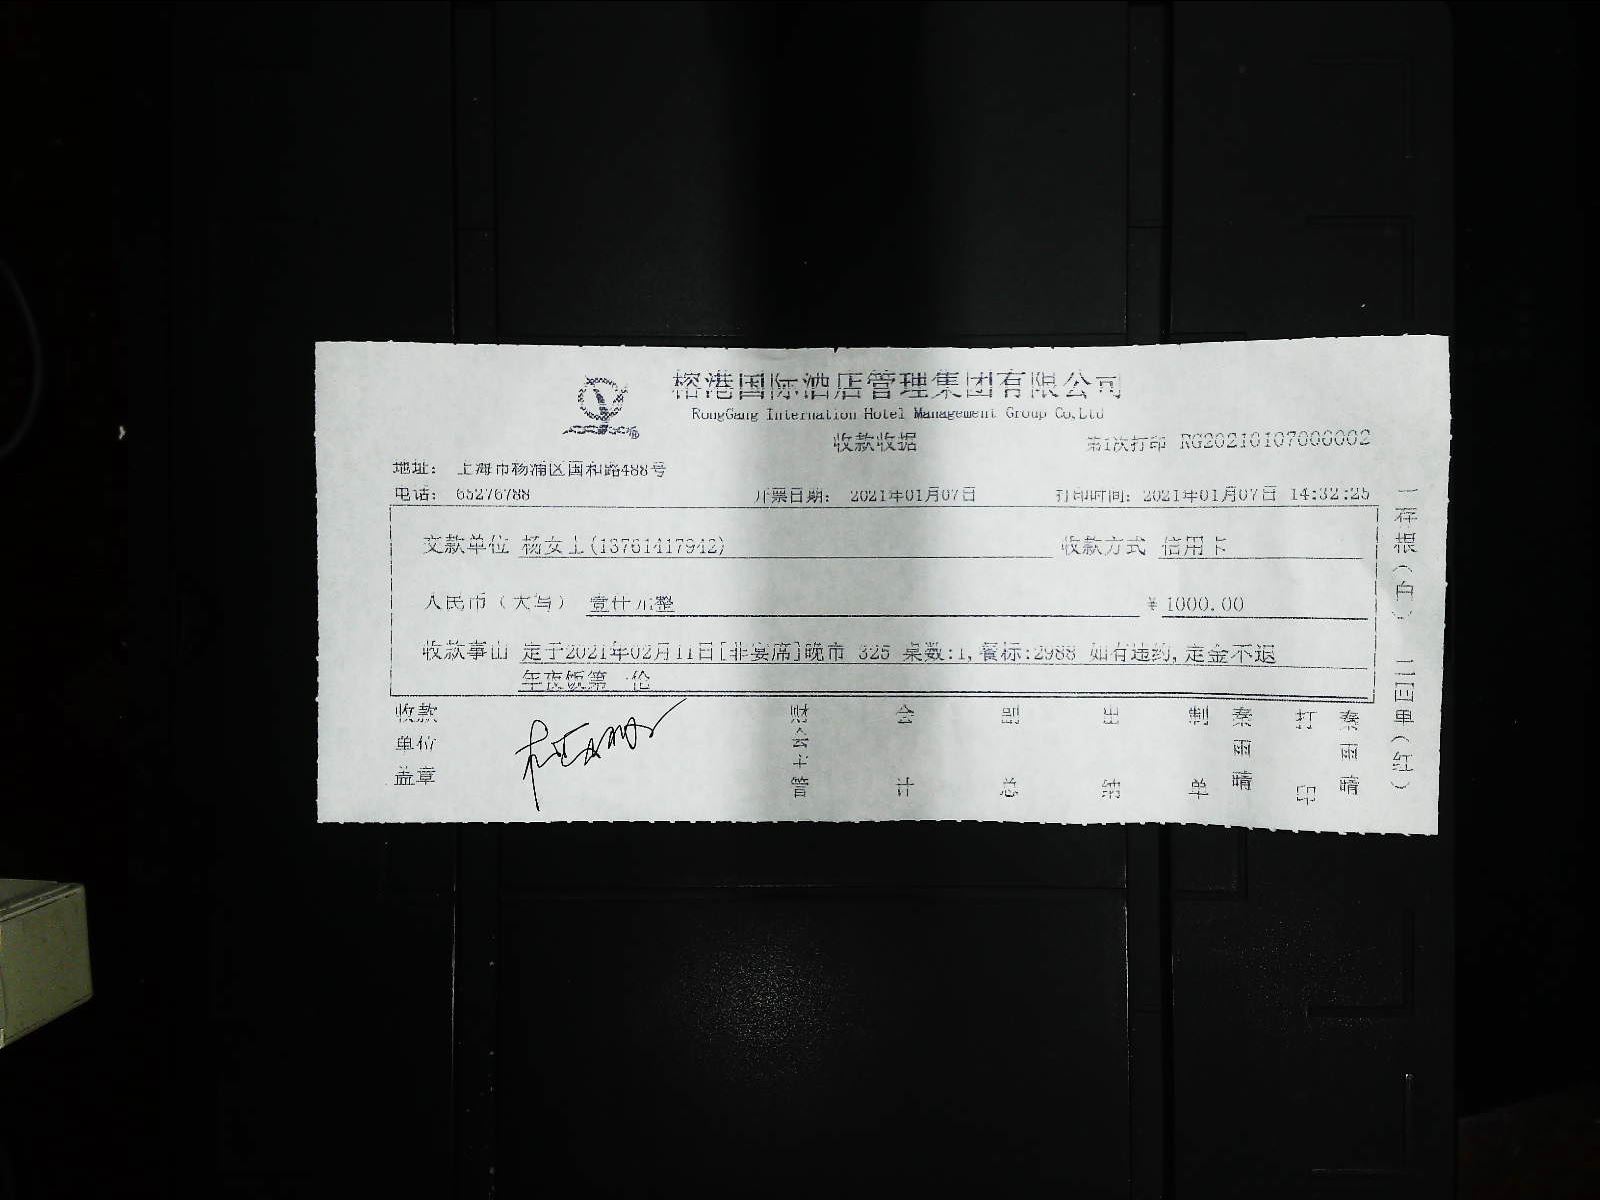 榕港国际酒店管理集团有限公司
RongGang Internation Hotel Management Group Co,Ltd
收款收据
第1次打印 RG20210107000002
地址： 上海市杨浦区国和路488号
电话： 65276788 开票日期： 2021年01月07日 打印时间：2021年01月07日 14:32:25
交款单位 杨女士(13761417942) 收款方式 信用卡
人民币（大写） 壹仟元整 ￥1000.00
收款事由 定于2021年02月11日[非宴席]晚市 325 桌数:1,餐标:2988 如有违约,定金不退
年夜饭第一轮
收款单位盖章
财会主管
会计
副总
出纳
制单 秦雨晴
打印 秦雨晴
一存根（白） 二回单（红）